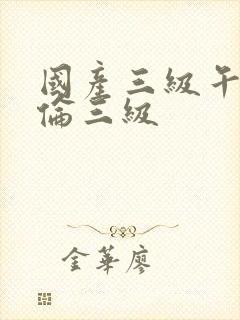 國產三級午
倫三級
金華廖